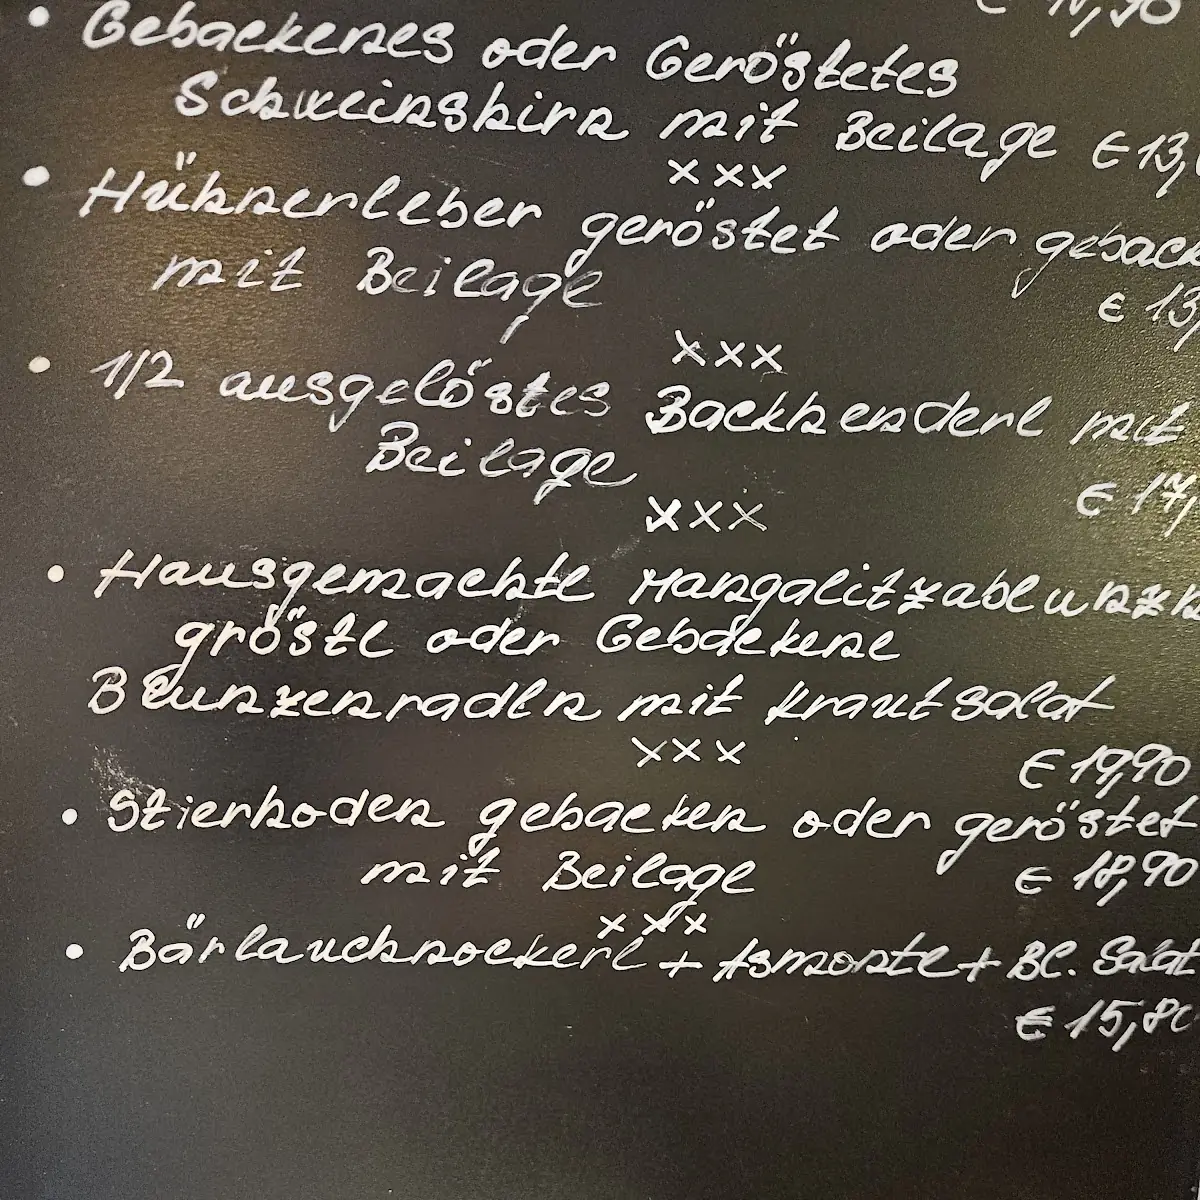 • Gebackenes oder Geröstetes
Schweinshirn mit Beilage € 13,
xxx
• Hühnerleber geröstet oder geback
mit Beilage
€ 13,
xxx
• 1/2 ausgelöstes Backhenderl mit
Beilage
€ 17,
xxx
• Hausgemachte Mangalitzablunzn
gröstl oder Gebackene
Blunzenradln mit Krautsalat
xxx
€ 19,90
• Stierhoden gebacken oder geröstet
mit Beilage € 18,90
xxx
• Bärlauchnockerl + Asmonte + Bl. Salat
€ 15,80